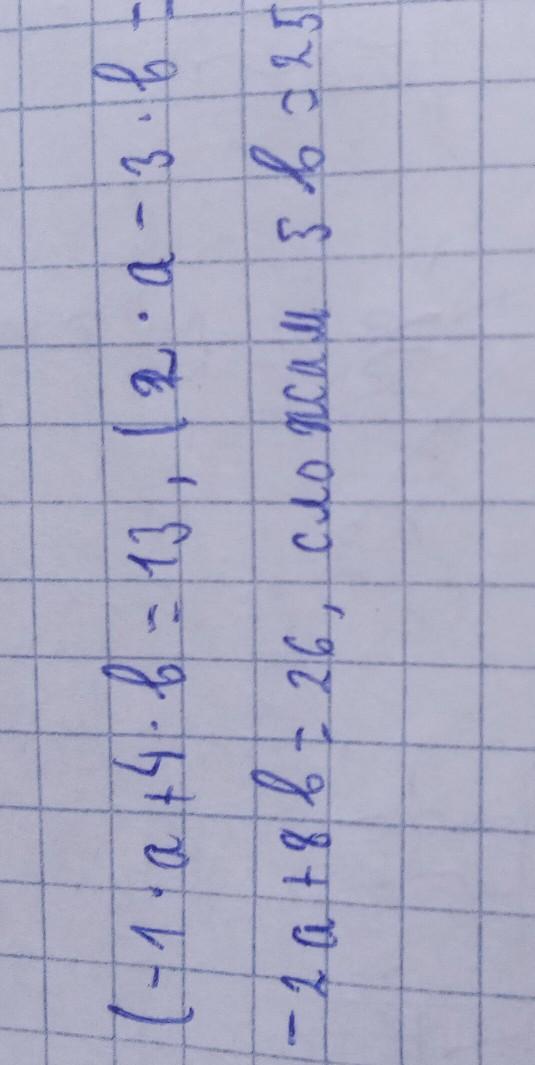 (-1·a+4·b=13, (2·a-3·b=
-2a+8b=26, сложам 5b=25